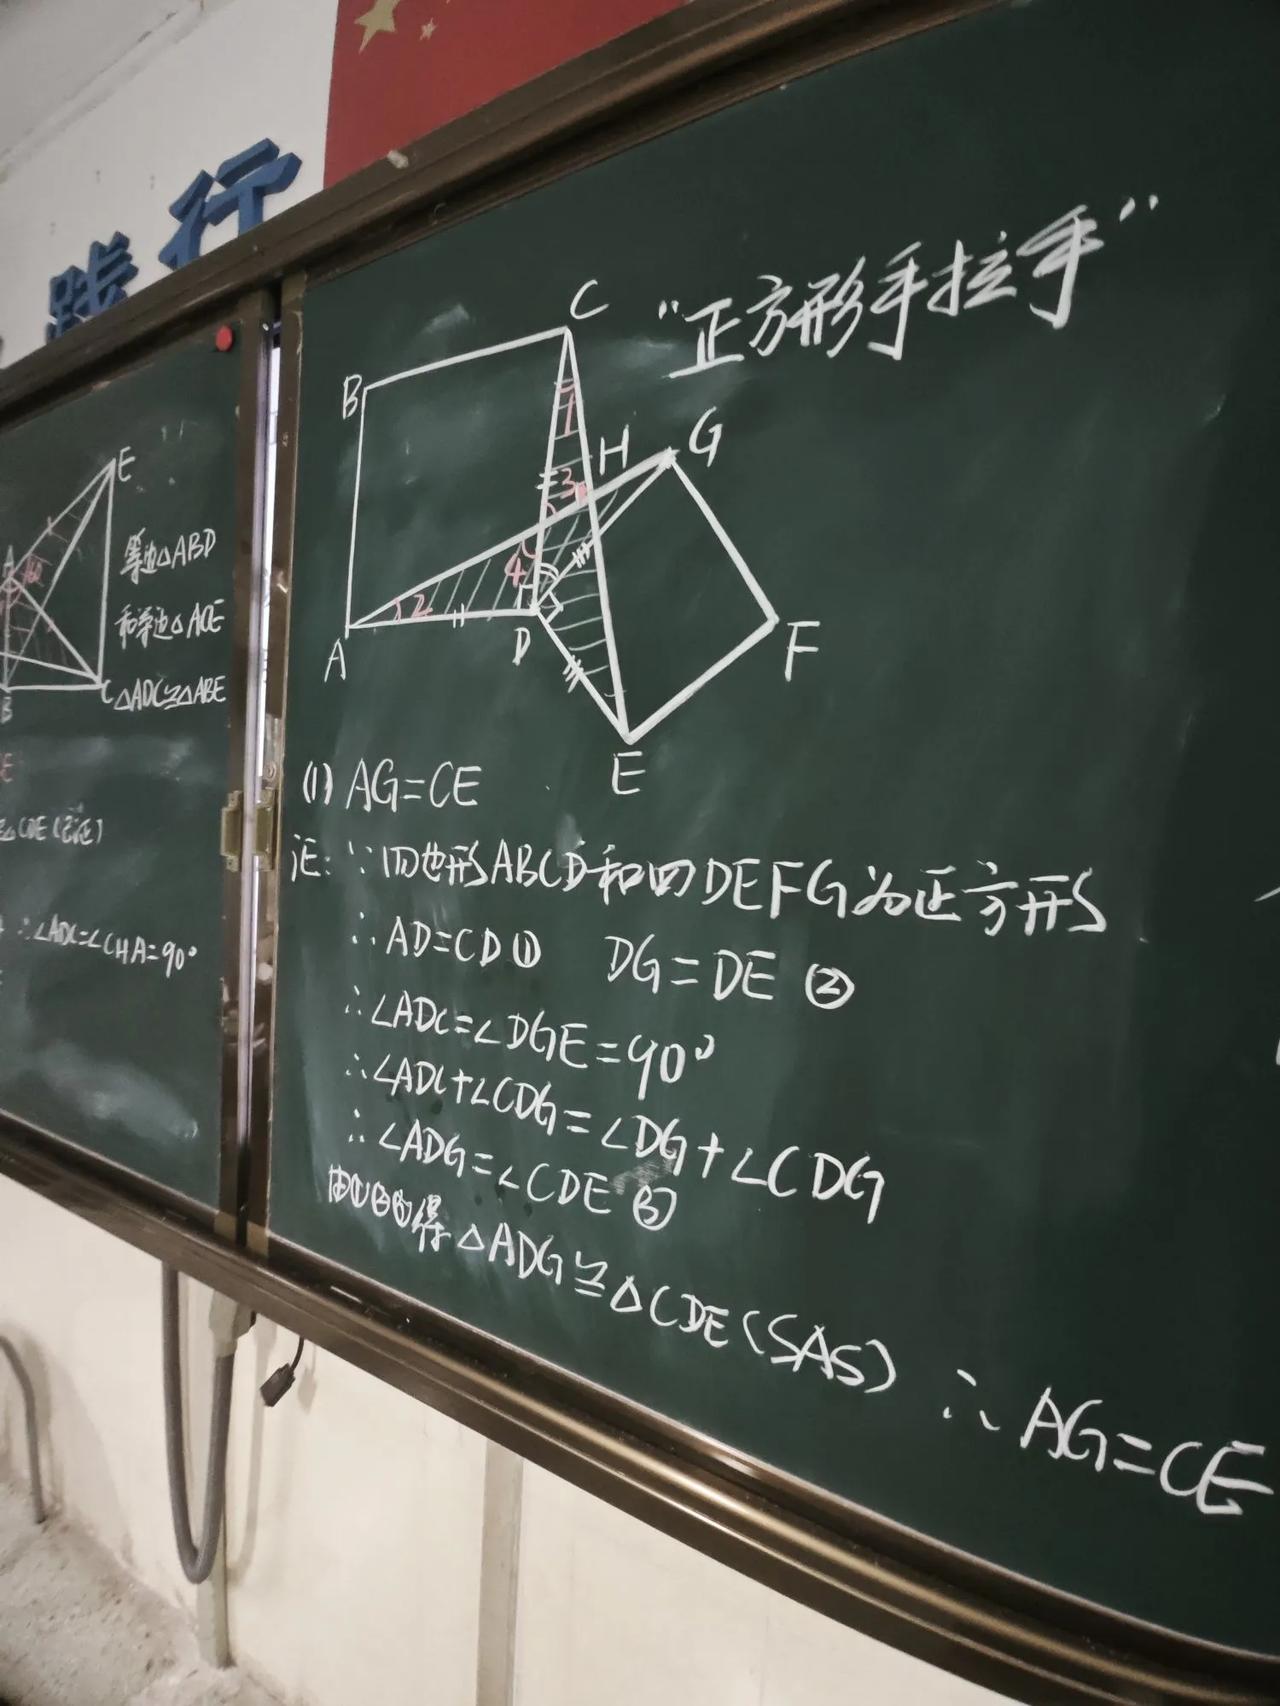 践行
"正方形手拉手"
E
等边△ABD
和等边△ACE
△ADC≌△ABE
A
B
C
CDE(已证)
∴∠ADC=∠CHA=90°
C
B
H
G
1
3
4
2
A
D
F
E
(1) AG=CE
证:∵四边形ABCD和四DEFG为正方形
∴AD=CD① DG=DE②
∴∠ADC=∠DGE=90°
∴∠ADC+∠CDG=∠DG+∠CDG
∴∠ADG=∠CDE③
由①②③得△ADG≌△CDE(SAS) ∴AG=CE